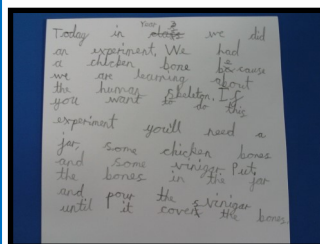 Year 3
Today in class we did
an experiment. We had
a chicken bone because
we are learning about
the human skeleton. If
you want to do this
experiment you'll need a
jar, some chicken bones
and some vinigar. Put
the bones in the jar
and pour the vinigar
until it covers the bones.